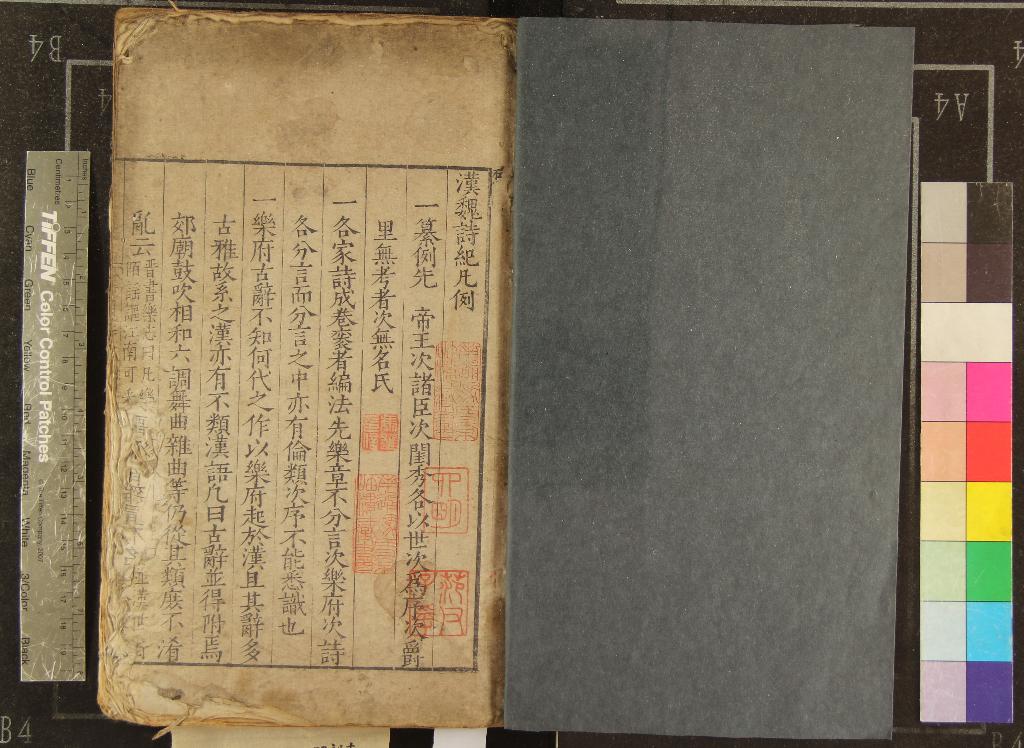 漢魏詩紀凡例
一纂例先　帝王次諸臣次閨秀各以世次爲序次爵
里無考者次無名氏
一各家詩成卷袠者編法先樂章不分言次樂府次詩
各分言而分言之中亦有倫類次序不能悉識也
一樂府古辭不知何代之作以樂府起於漢且其辭多
古雅故系之漢亦有不類漢語凡曰古辭並得附焉
郊廟鼓吹相和六調舞曲雜曲等仍從其類庶不淆
亂云
晋書樂志曰凡樂
陌謡謳江南可
B4
A4
B4
Inches
Centimetres
TIFFEN Color Control Patches
Blue
Cyan
Green
Yellow
Red
Magenta
White
3/Color
Black